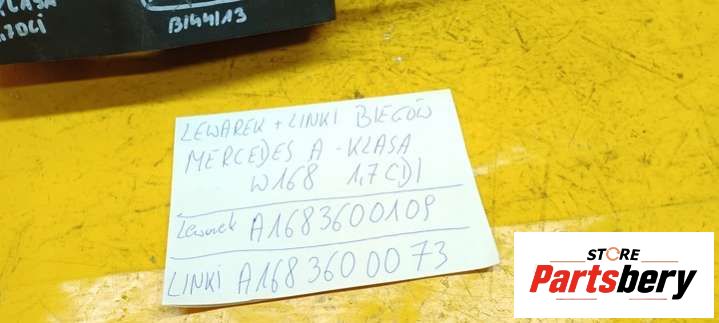 1.7DCi
B144113
LEWAREK + LINKI BIEGÓW
MERCEDES A-KLASA
W168 1,7CDI
Lewarek A1683600109
LINKI A1683600073
STORE
Partsbery